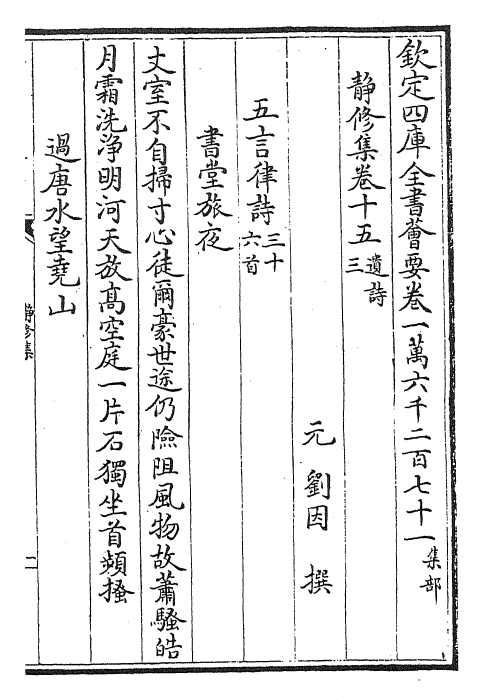 欽定四庫全書薈要卷一萬六千二百七十一集部
静修集卷十五遺詩三
元劉因撰
五言律詩三十六首
書堂旅夜
丈室不自掃寸心徒爾豪世途仍險阻風物故蕭騷皓
月霜洗淨明河天放髙空庭一片石獨坐首頻搔
過唐水望堯山
静修集
一